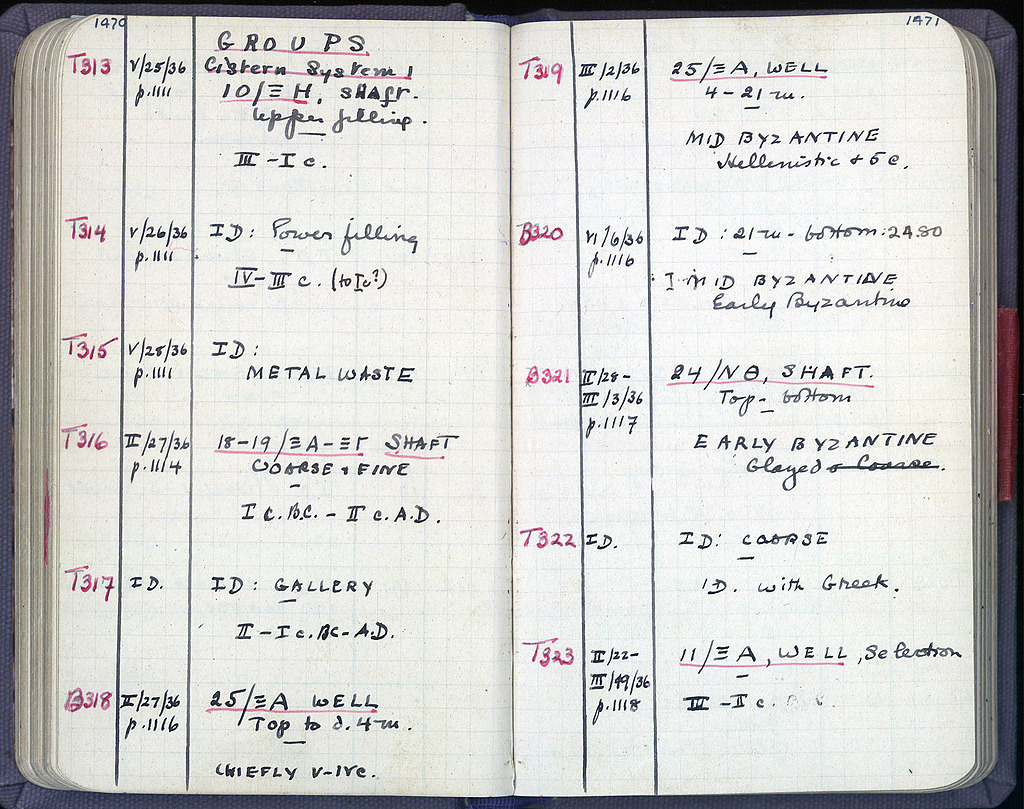 1470
GROUPS
T313 V/25/36 Cistern System 1
p.1111 10/Ξ H, Shaft.
Upper filling.
III - I c.
T314 V/26/36 ID: Power filling
p.1111
IV-III c. (to Ic?)
T315 V/28/36 ID:
p.1111 METAL WASTE
T316 II/27/36 18-19/ΞA-ΞΓ SHAFT
p.1114 COARSE + FINE
I C.B.C. - II C.A.D.
T317 ID. ID: GALLERY
II - I c. BC-A.D.
B318 II/27/36 25/ΞA WELL
p.1116 Top to d. 4 m.
CHIEFLY V-IVc.
1471
T319 III/2/36 25/ΞA, WELL
p.1116 4-21 m.
MID BYZANTINE
Hellenistic + 5 c.
B320 VI/6/36 ID: 21 m - bottom: 24.80
p.1116
I MID BYZANTINE
Early Byzantine
B321 II/28- 24/ΝΘ, SHAFT.
III/3/36 Top - bottom
p.1117
EARLY BYZANTINE
Glazed + Coarse.
T322 ID. ID: COARSE
ID. with Greek.
T323 II/22- 11/ΞA, WELL, Selection
III/49/36
p.1118 III - II c.